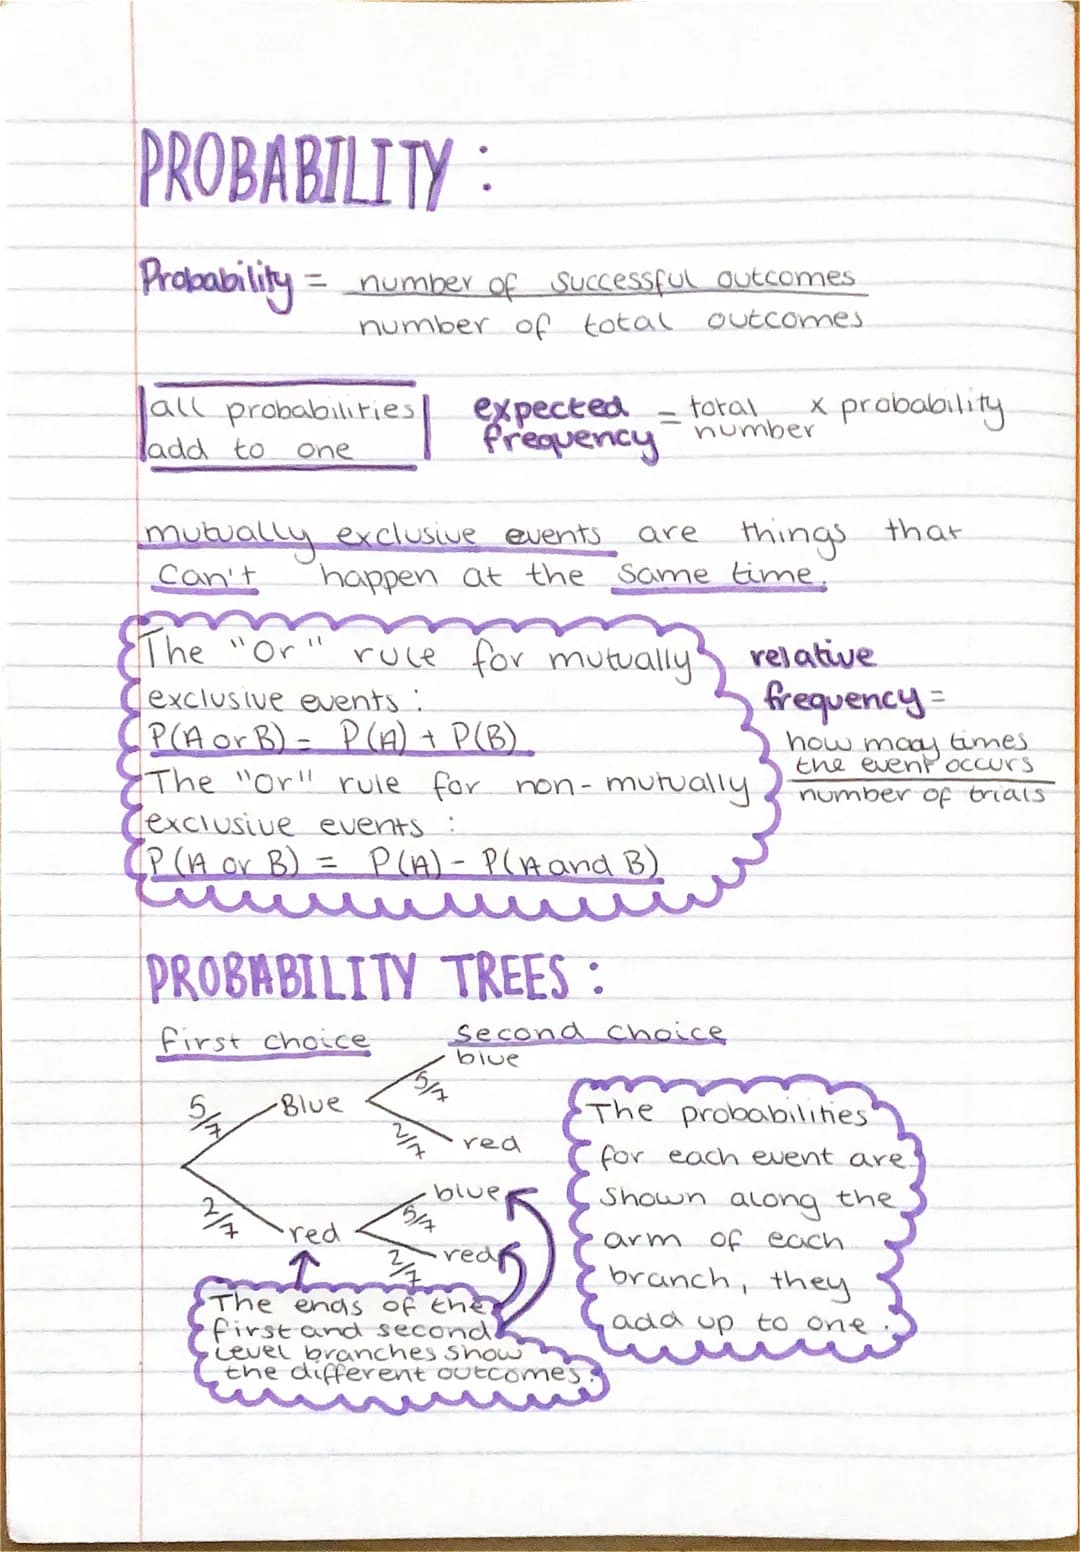 PROBABILITY :
Probability = number of successful outcomes
number of total outcomes
all probabilities
add to one
expected frequency = total number x probability
mutually exclusive events are things that
can't happen at the same time.
The "Or" rule for mutually
exclusive events :
P(A or B) = P(A) + P(B)
The "or" rule for non-mutually
exclusive events :
P(A or B) = P(A) - P(A and B)
relative
frequency =
how many times
the event occurs
number of trials
PROBABILITY TREES :
first choice second choice
blue
5/7
5/7 Blue
2/7 red
blue
2/7 5/7
red
2/7 red
The ends of the
first and second
level branches show
the different outcomes.
The probabilities
for each event are
shown along the
arm of each
branch, they
add up to one.